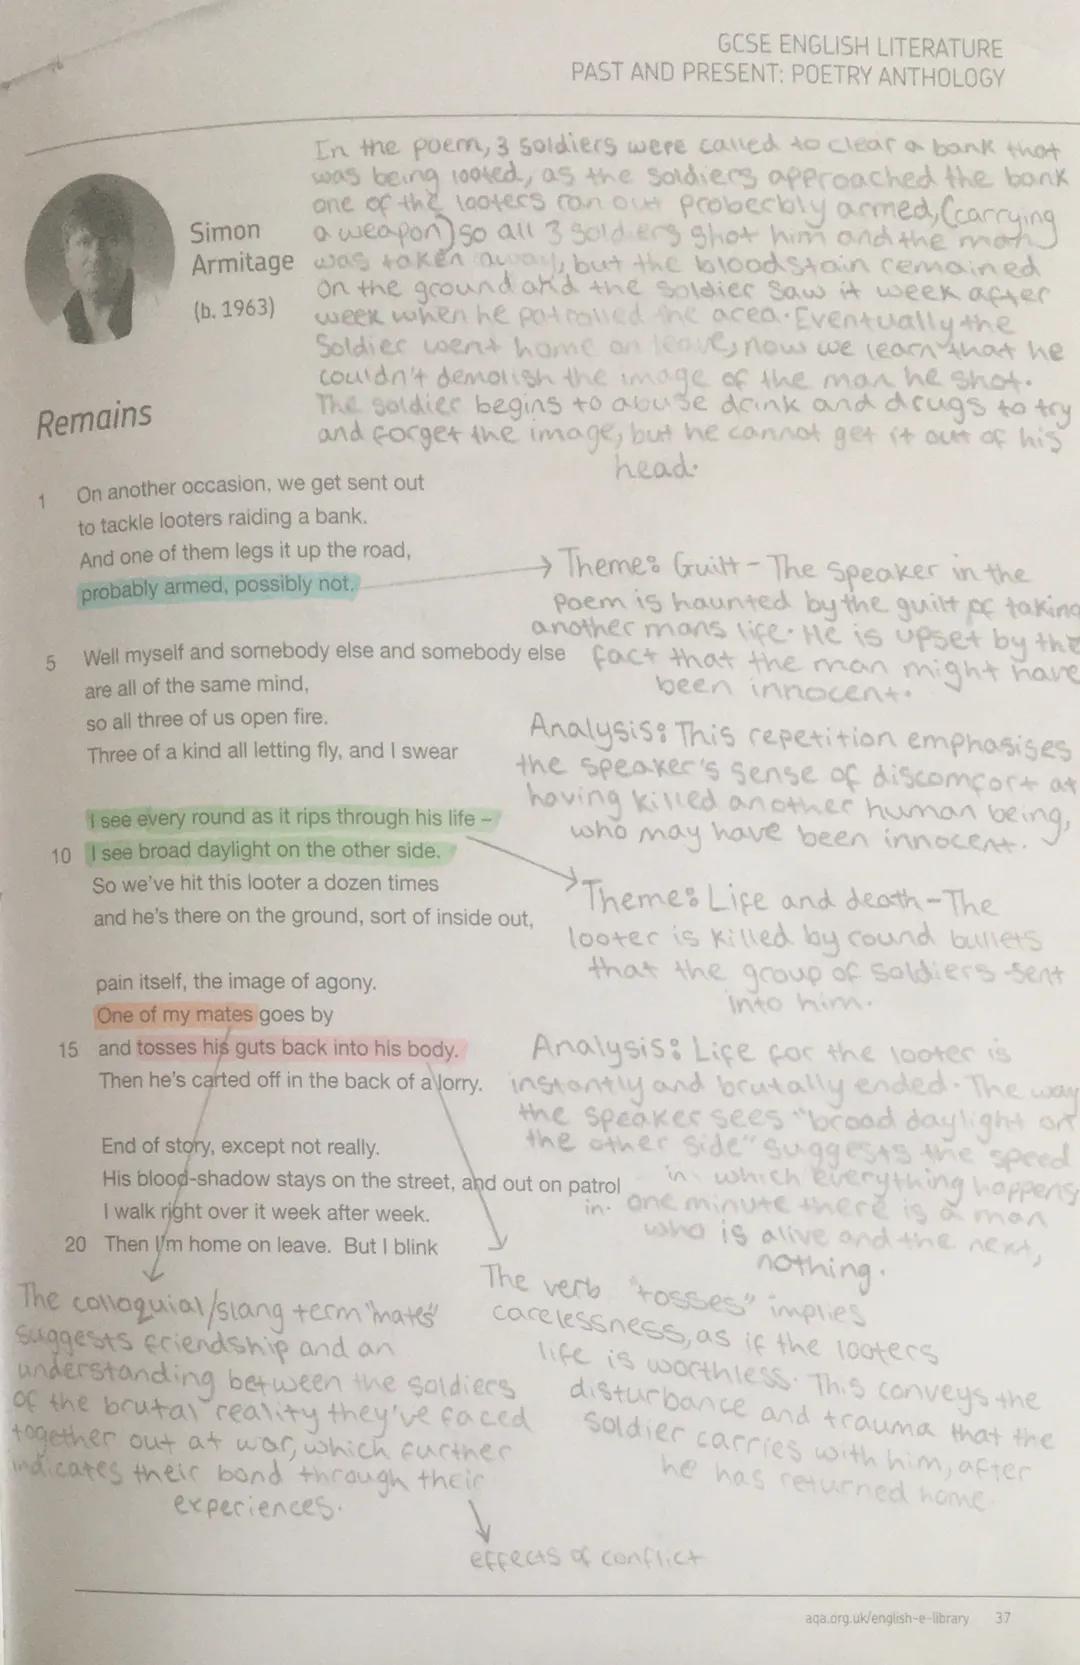 GCSE ENGLISH LITERATURE
PAST AND PRESENT: POETRY ANTHOLOGY
In the poem, 3 soldiers were called to clear a bank that
was being looted, as the soldiers approached the bank
one of the looters ran out proberbly armed, (carrying
a weapon) so all 3 soldiers shot him and the man
was taken away, but the bloodstain remained
on the ground and the soldier saw it week after
week when he patrolled the area. Eventually the
Soldier went home on leave, now we learn that he
couldn't demolish the image of the man he shot.
The soldier begins to abuse drink and drugs to try
and forget the image, but he cannot get it out of his
head.
Simon
Armitage
(b. 1963)
Remains
1 On another occasion, we get sent out
to tackle looters raiding a bank.
And one of them legs it up the road,
probably armed, possibly not.
→ Theme: Guilt - The speaker in the
poem is haunted by the guilt of taking
another mans life. He is upset by the
fact that the man might have
been innocent.
5 Well myself and somebody else and somebody else
are all of the same mind,
so all three of us open fire.
Three of a kind all letting fly, and I swear
Analysis: This repetition emphasises
the speaker's sense of discomfort at
having killed another human being,
who may have been innocent.
I see every round as it rips through his life –
10 I see broad daylight on the other side.
So we've hit this looter a dozen times
and he's there on the ground, sort of inside out,
Theme: Life and death - The
looter is killed by round bullets
that the group of soldiers sent
into him.
pain itself, the image of agony.
One of my mates goes by
15 and tosses his guts back into his body.
Then he's carted off in the back of a lorry.
Analysis: Life for the looter is
instantly and brutally ended. The way
the speaker sees "broad daylight on
the other side" suggests the speed
in which everything happens
in. one minute there is a man
who is alive and the next,
nothing.
End of story, except not really.
His blood-shadow stays on the street, and out on patrol
I walk right over it week after week.
20 Then I'm home on leave. But I blink
The colloquial/slang term "mates"
suggests friendship and an
understanding between the soldiers
of the brutal reality they've faced
together out at war, which further
indicates their bond through their
experiences.
The verb "tosses" implies
carelessness, as if the looters
life is worthless. This conveys the
disturbance and trauma that the
soldier carries with him, after
he has returned home.
effects of conflict
aqa.org.uk/english-e-library 37